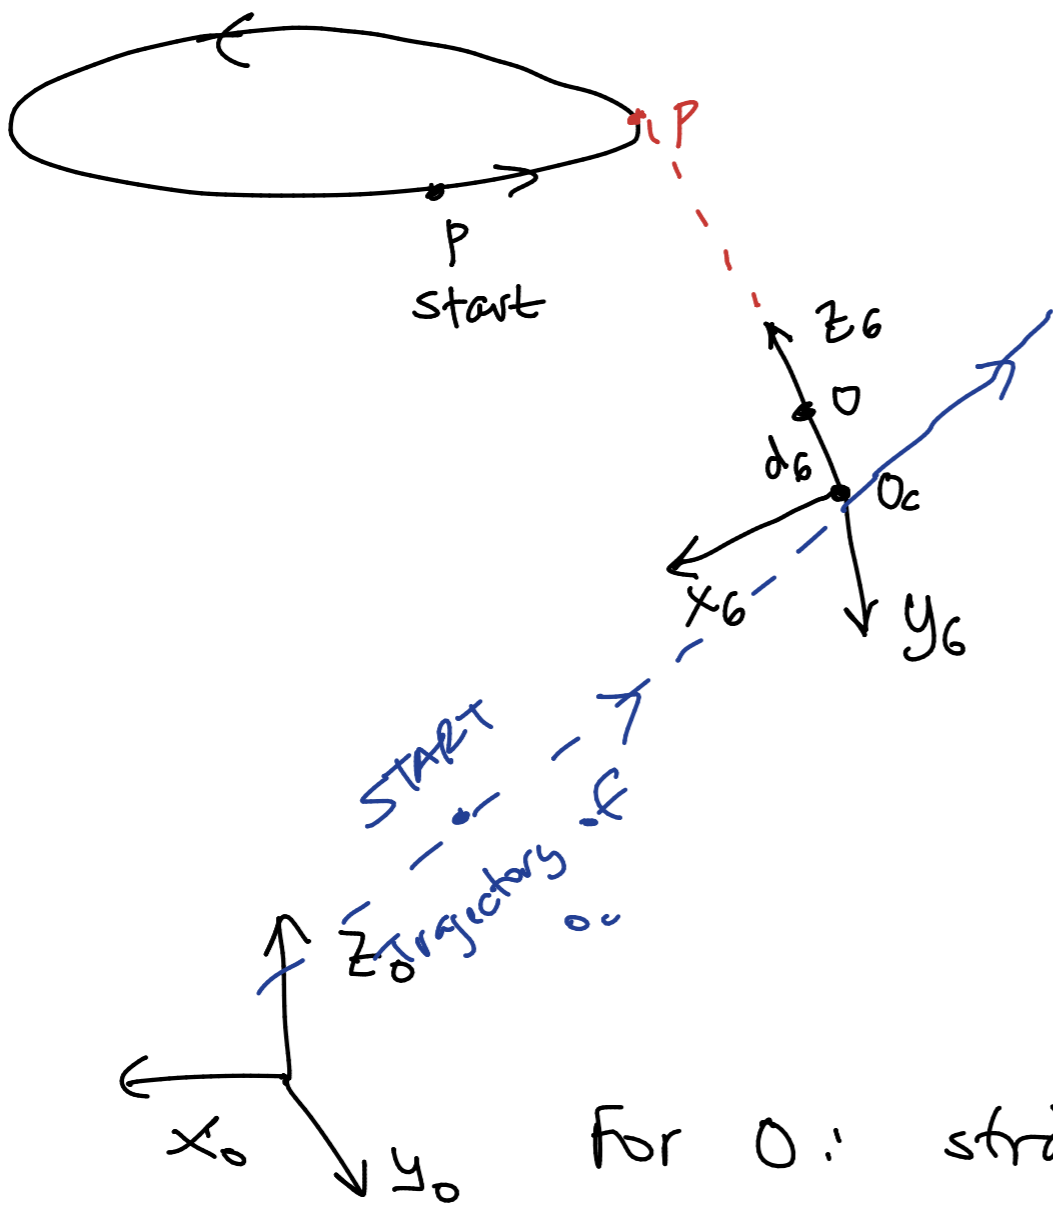 P
P
start
z6
O
d6
Oc
x6
y6
START
Trajectory of
Oc
Z0
X0
y0
For O: